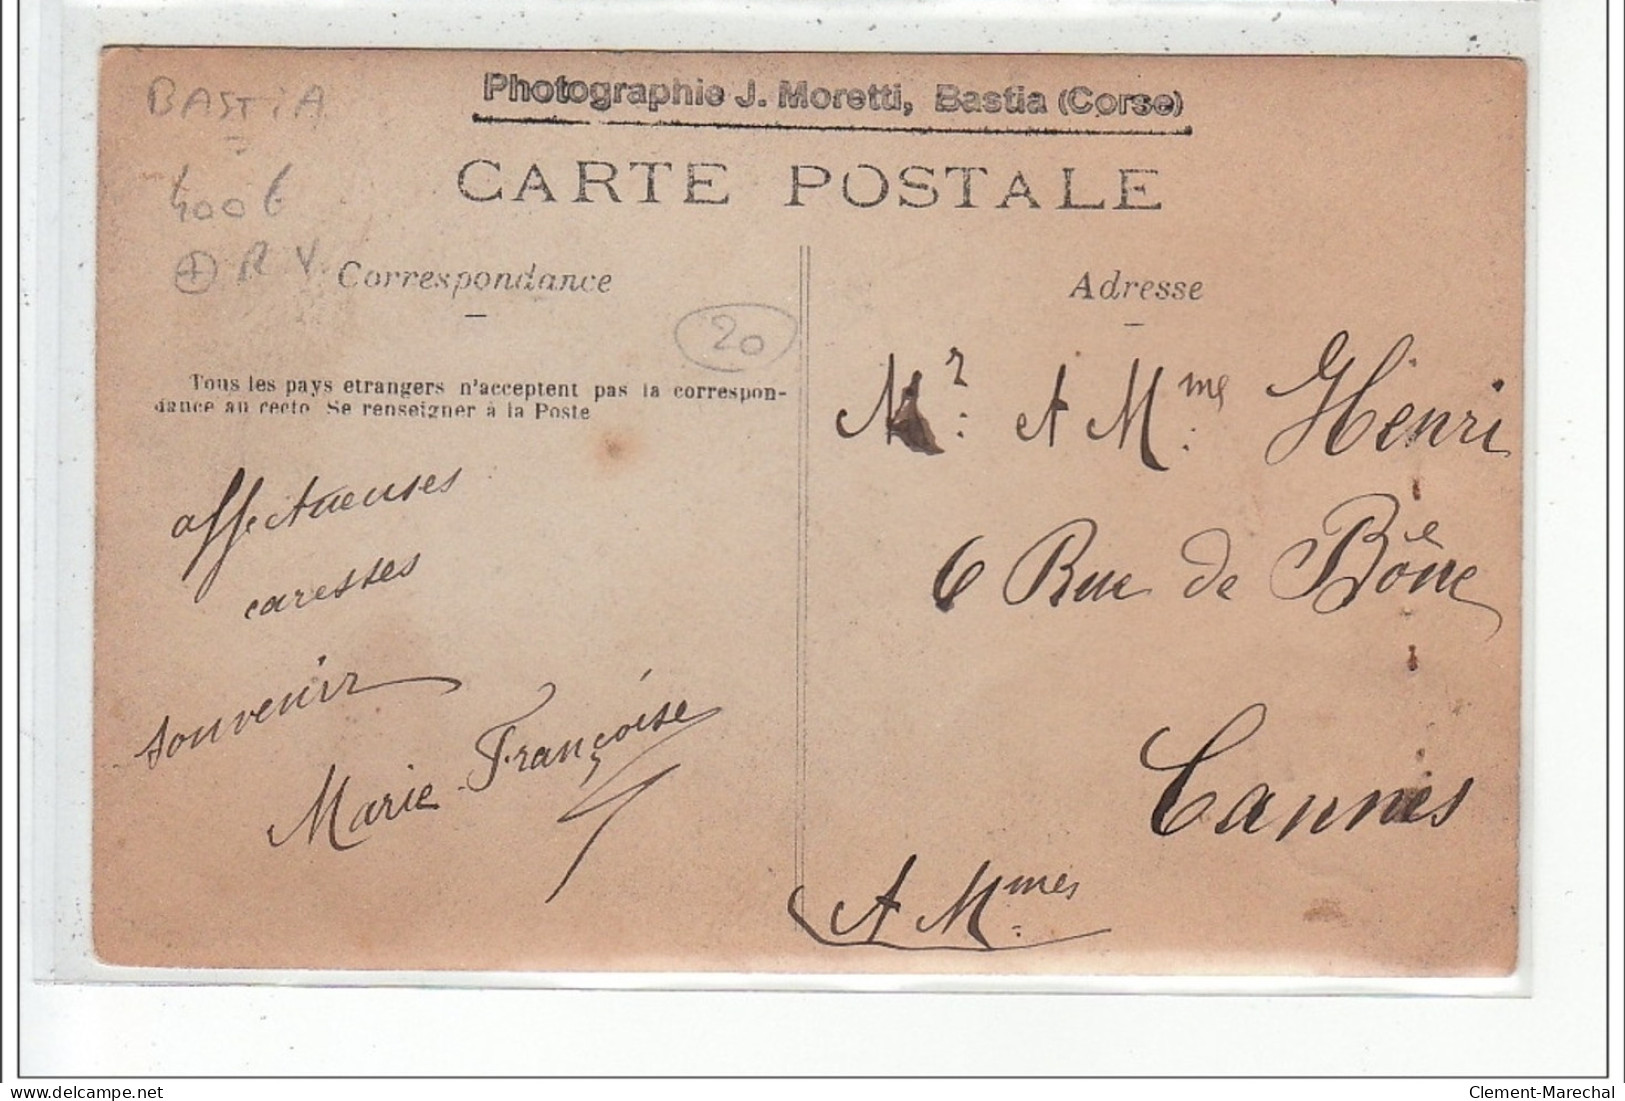 Photographie J. Moretti, Bastia (Corse)
BASTiA
CARTE POSTALE
400 €
+ R V
Correspondance
Adresse
20
Tous les pays etrangers n'acceptent pas la correspon-
dance au recto. Se renseigner à la Poste
affectueuses
caresses
souvenir
Marie-Françoise
Mr. et Mme. Henri
6 Rue de Bône
Cannes
A Mmes
delcampe.net
Clement-Marechal